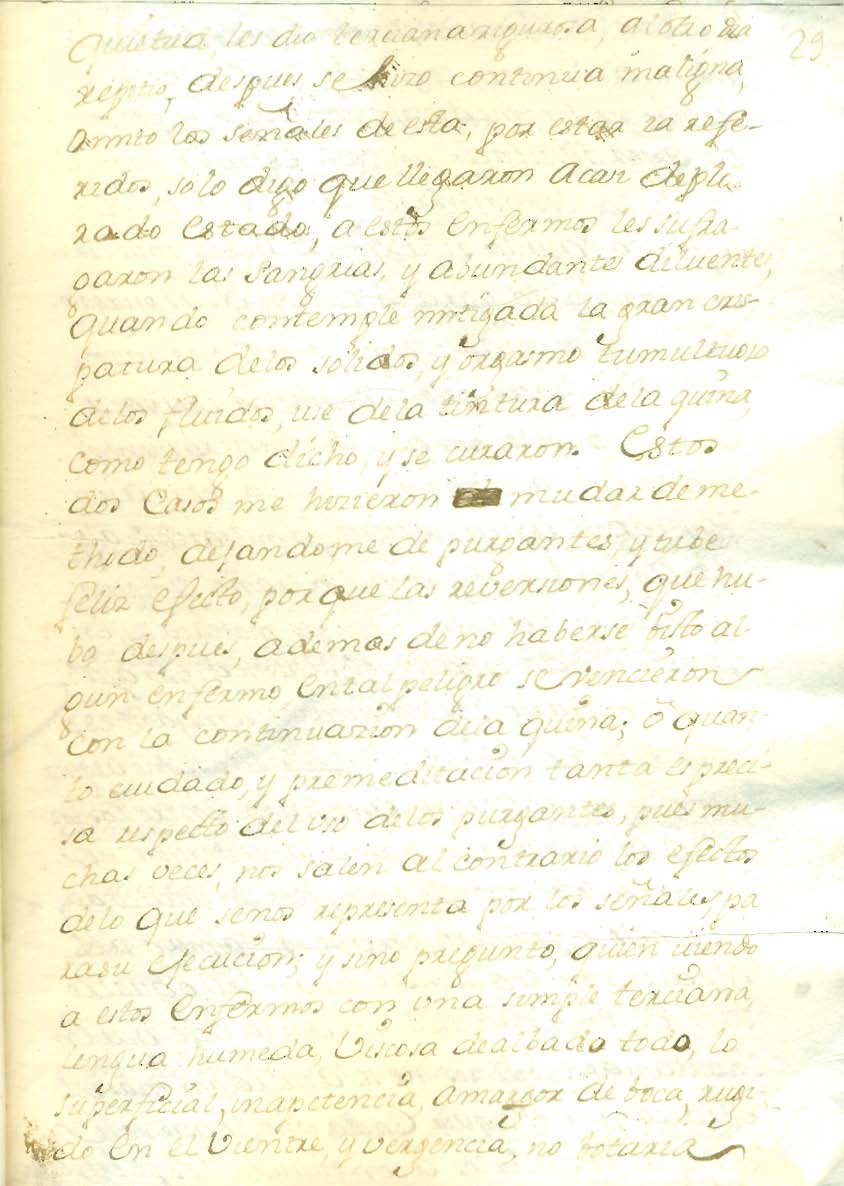 29
quietud, les dio terciana rigurosa, al otro dia
repitio, despues se hizo continua maligna,
omito los señales de esta, por estar ia refe-
ridos, solo digo que llegaron a casi deplo
rado estado, a estos enfermos les sufra-
garon las sangrias, y abundantes diluentes,
quando contemplé mitigada la gran cris-
patura delos solidos, y orgasmo tumultuoso
delos fluidos, use dela tintura dela quina,
como tengo dicho, y se curaron. Estos
dos casos me hizieron mudar de me-
thodo, dejandome de purgantes, y tube
feliz efecto, porque las reversiones, que hu-
bo despues, ademas de no haberse bisto al-
gun enfermo en tal peligro se vencieron
con la continuazion dela quina; ô quan-
to cuidado, y premeditacion tanta es preci-
sa respecto del uso delos purgantes, pues mu-
chas veces, nos salen al contrario los efectos
delo que senos representa por los señales, pa
rasu ejecucion; y sino pregunto, quien viendo
a estos enfermos con una simple terciana,
lengua humeda, viscosa dealbado todo, lo
superficial, inapetencia, amargor de boca, rugi-
do en el vientre, y vergencia, no botaria